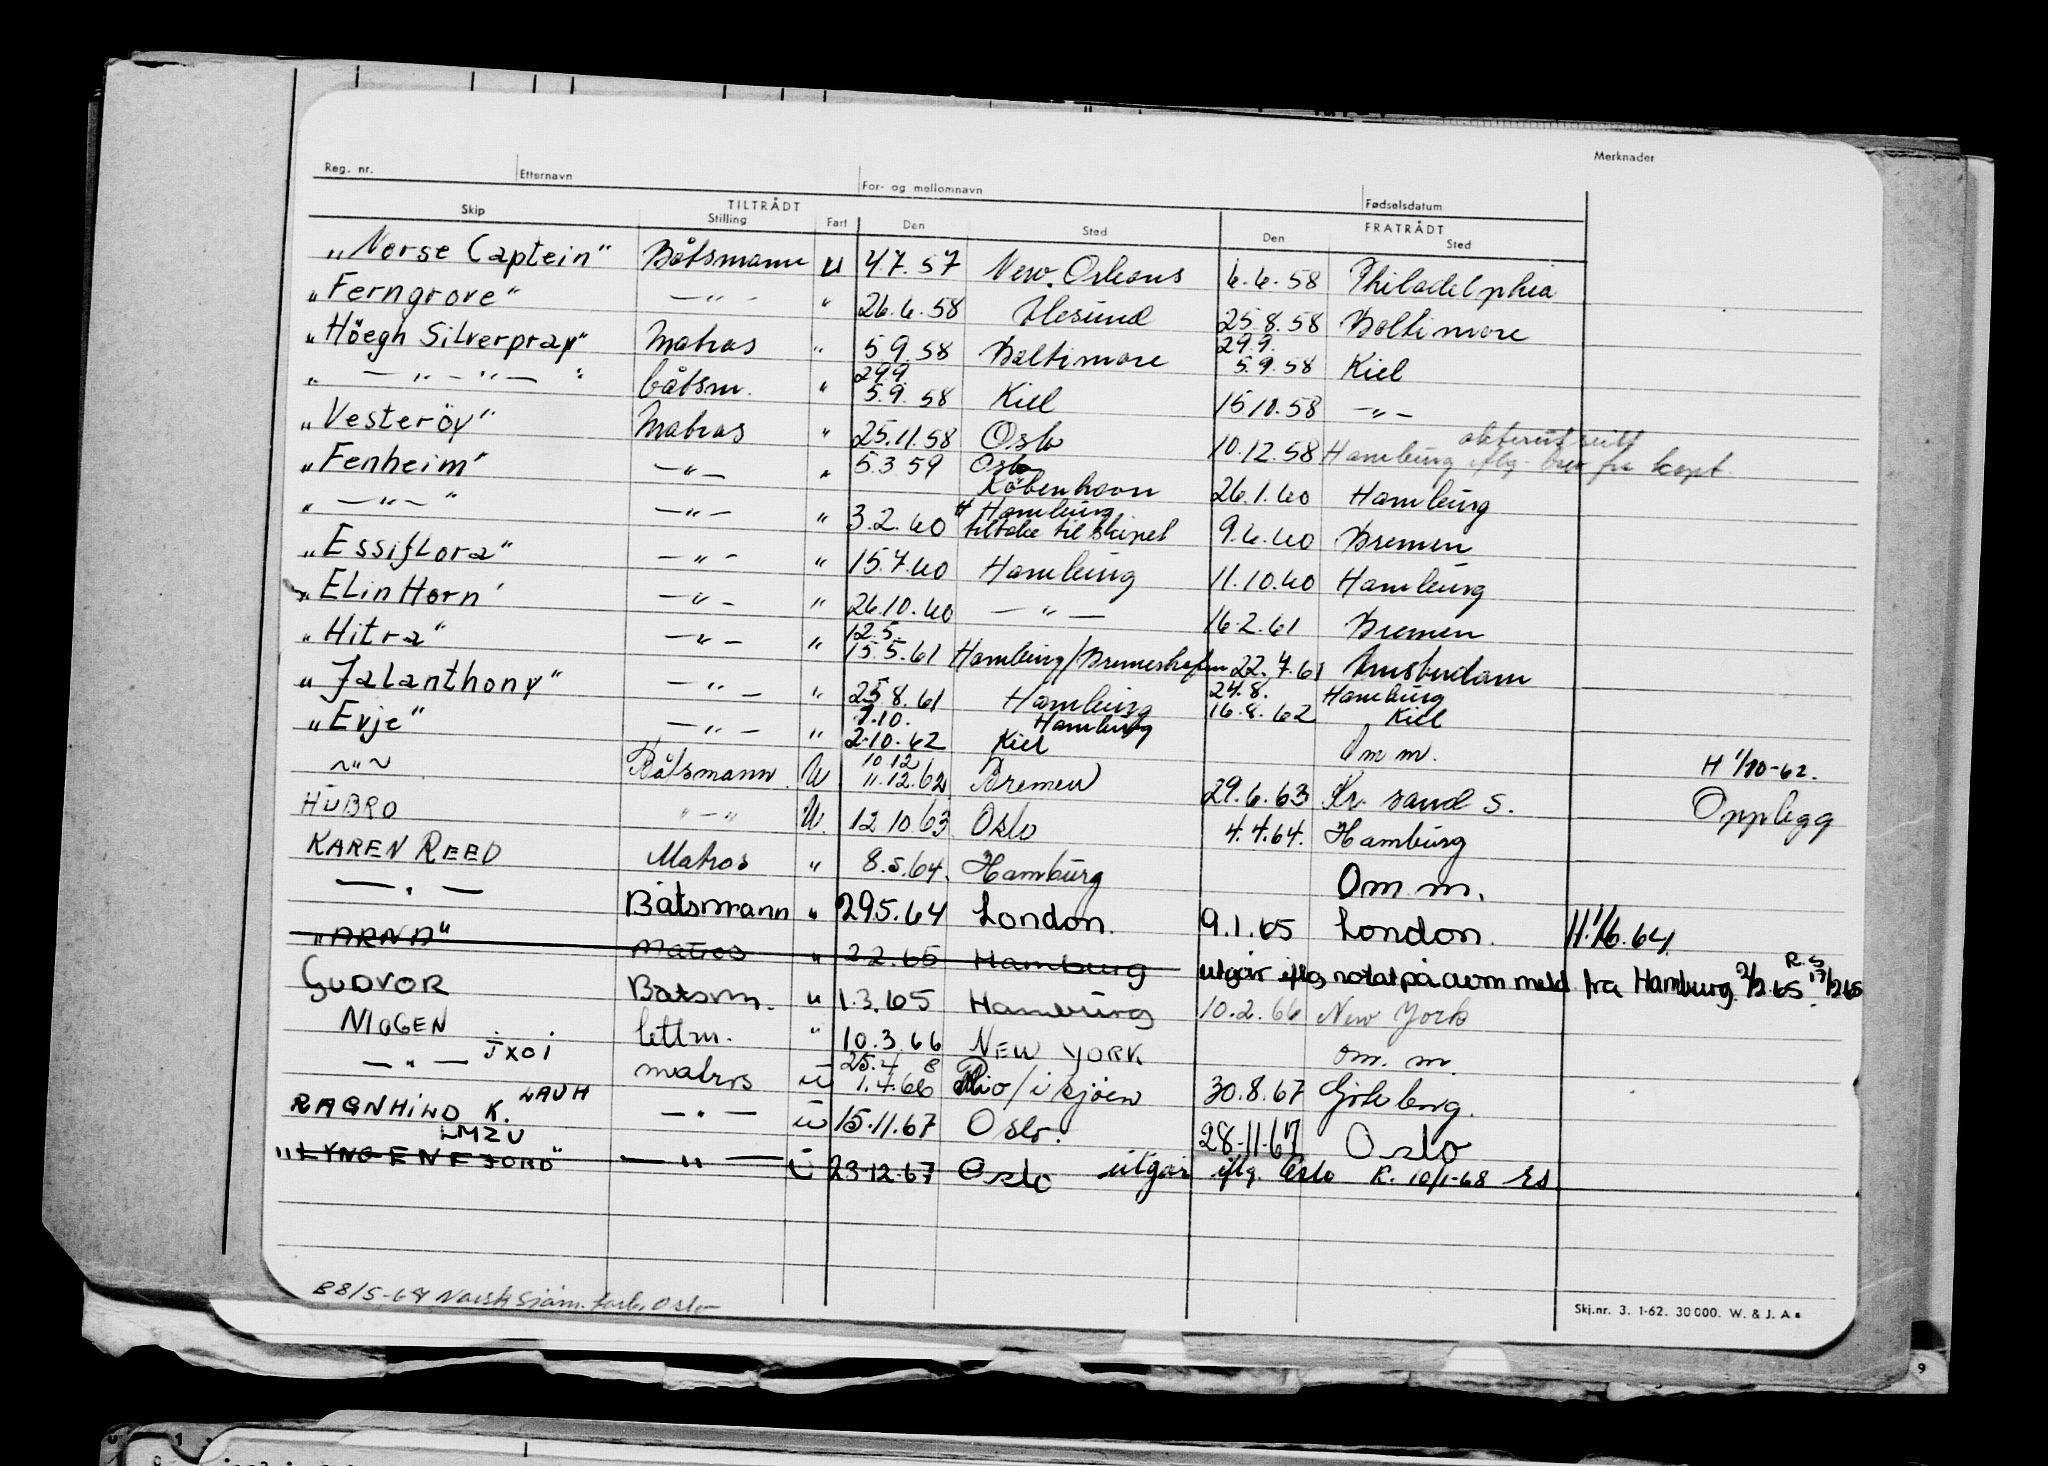 Merknader
Reg. nr. Etternavn For- og mellomnavn Fødselsdatum
TILTRÅDT FRATRÅDT
Skip Stilling Fart Den Sted Den Sted
"Norse Captein" Båtsmann U 4.7.57 New. Orleans 6.6.58 Philadelphia
"Ferngrove" — " - " 26.6.58 Ålesund 25.8.58 Baltimore
"Höegh Silverpray" Matros " 5.9.58 Baltimore 29.9. 5.9.58 Kiel
" — " — " — " båtsm. " 29.9. 5.9.58 Kiel 15.10.58 — " —
"Vesteröy" Matros " 25.11.58 Oslo 10.12.58 Hamburg iflg. brev fra kapt.
"Fenheim" — " — " 5.3.59 Oslo København 26.1.60 Hamburg
" — " — " — " — " 3.2.60 Hamburg tilbake til skipet 9.6.60 Bremen
"Essiflora" — " — " 15.7.60 Hamburg 11.10.60 Hamburg
"Elin Horn" — " — " 26.10.60 — " — 16.2.61 Bremen
"Hitra" — " — " 12.5. 15.5.61 Hamburg/Bremerhafen 22.7.61 Amsterdam
"Jalanthony" — " — " 25.8.61 Hamburg 24.8. 16.8.62 Hamburg Kiel
"Evje" — " — " 1.10. 2.10.62 Hamburg Kiel Om m. H 1/10-62.
~ " ~ Båtsmann U 10.12 11.12.62 Bremen 29.6.63 Kr. sand S. Opplegg
HUBRO " — " U. 12.10.63 Oslo 4.4.64. Hamburg
KAREN REED Matros " 8.5.64. Hamburg Om m.
— " — Båtsmann " 29.5.64 London. 9.1.65 London. H. 1/6.64
"ARNA" Matros " 2.2.65 Hamburg utgår iflg notat på avm meld fra Hamburg 2/2 65 R.S 17/2 65
GUDVOR Båtsm. " 1.3.65 Hamburg 10.2.66 New York
MOGEN lettm. " 10.3.66 NEW YORK om. m.
— " — JXOI matros U 25.4 8 1.4.66 Rio / i sjöen 30.8.67 Göteborg.
RAGNHILD K. LAUH — " — U 15.11.67 Oslo. 28-11-67 Oslo
"LYNGENFJORD" LMZU — " — U 23-12-67 Oslo utgår iflg. Oslo R. 10/1-68
B8/5-64 Norsk Sjøm. forb. Oslo
Skj.nr. 3. 1-62. 30 000. W. & J. A s
9